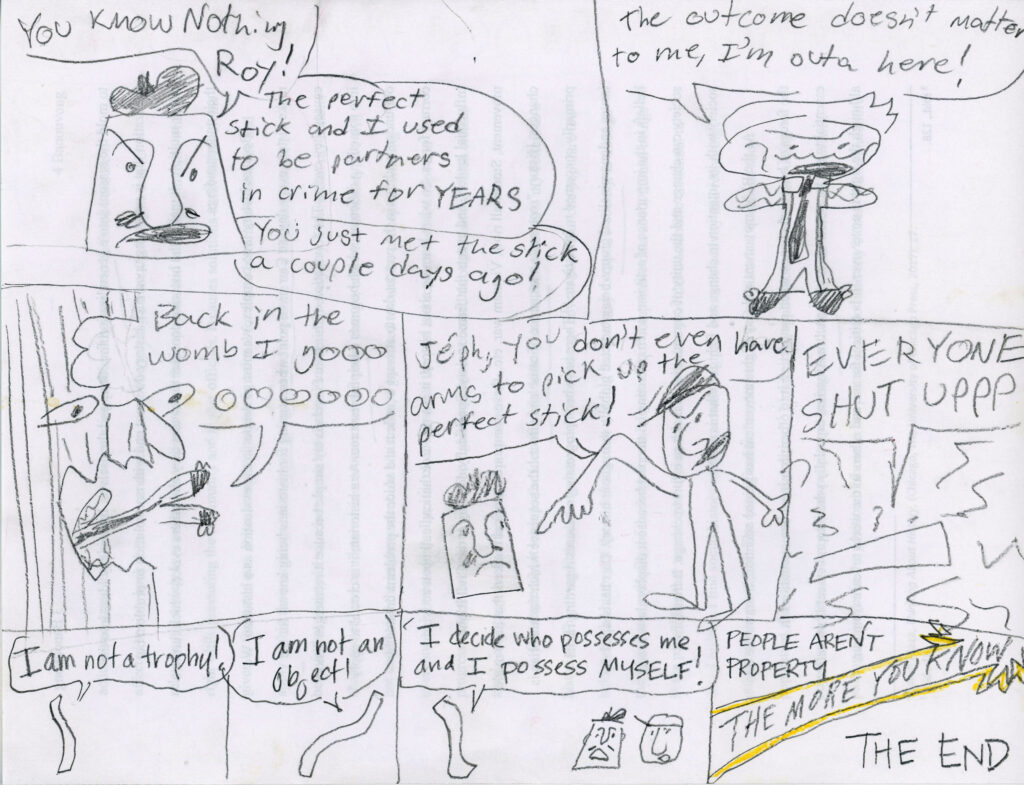 You know Nothing
Roy!
The perfect
stick and I used
to be partners
in crime for YEARS
You just met the stick
a couple days ago!
The outcome doesn't matter
to me, I'm outa here!
Back in the
womb I gooo
ooooooo
Jéph, you don't even have
arms to pick up the
perfect stick!
EVERYONE
SHUT UPPP
I am not a trophy!
I am not an
object!
I decide who possesses me
and I POSSESS MYSELF!
PEOPLE ARENT
PROPERTY
THE MORE YOU KNOW
THE END